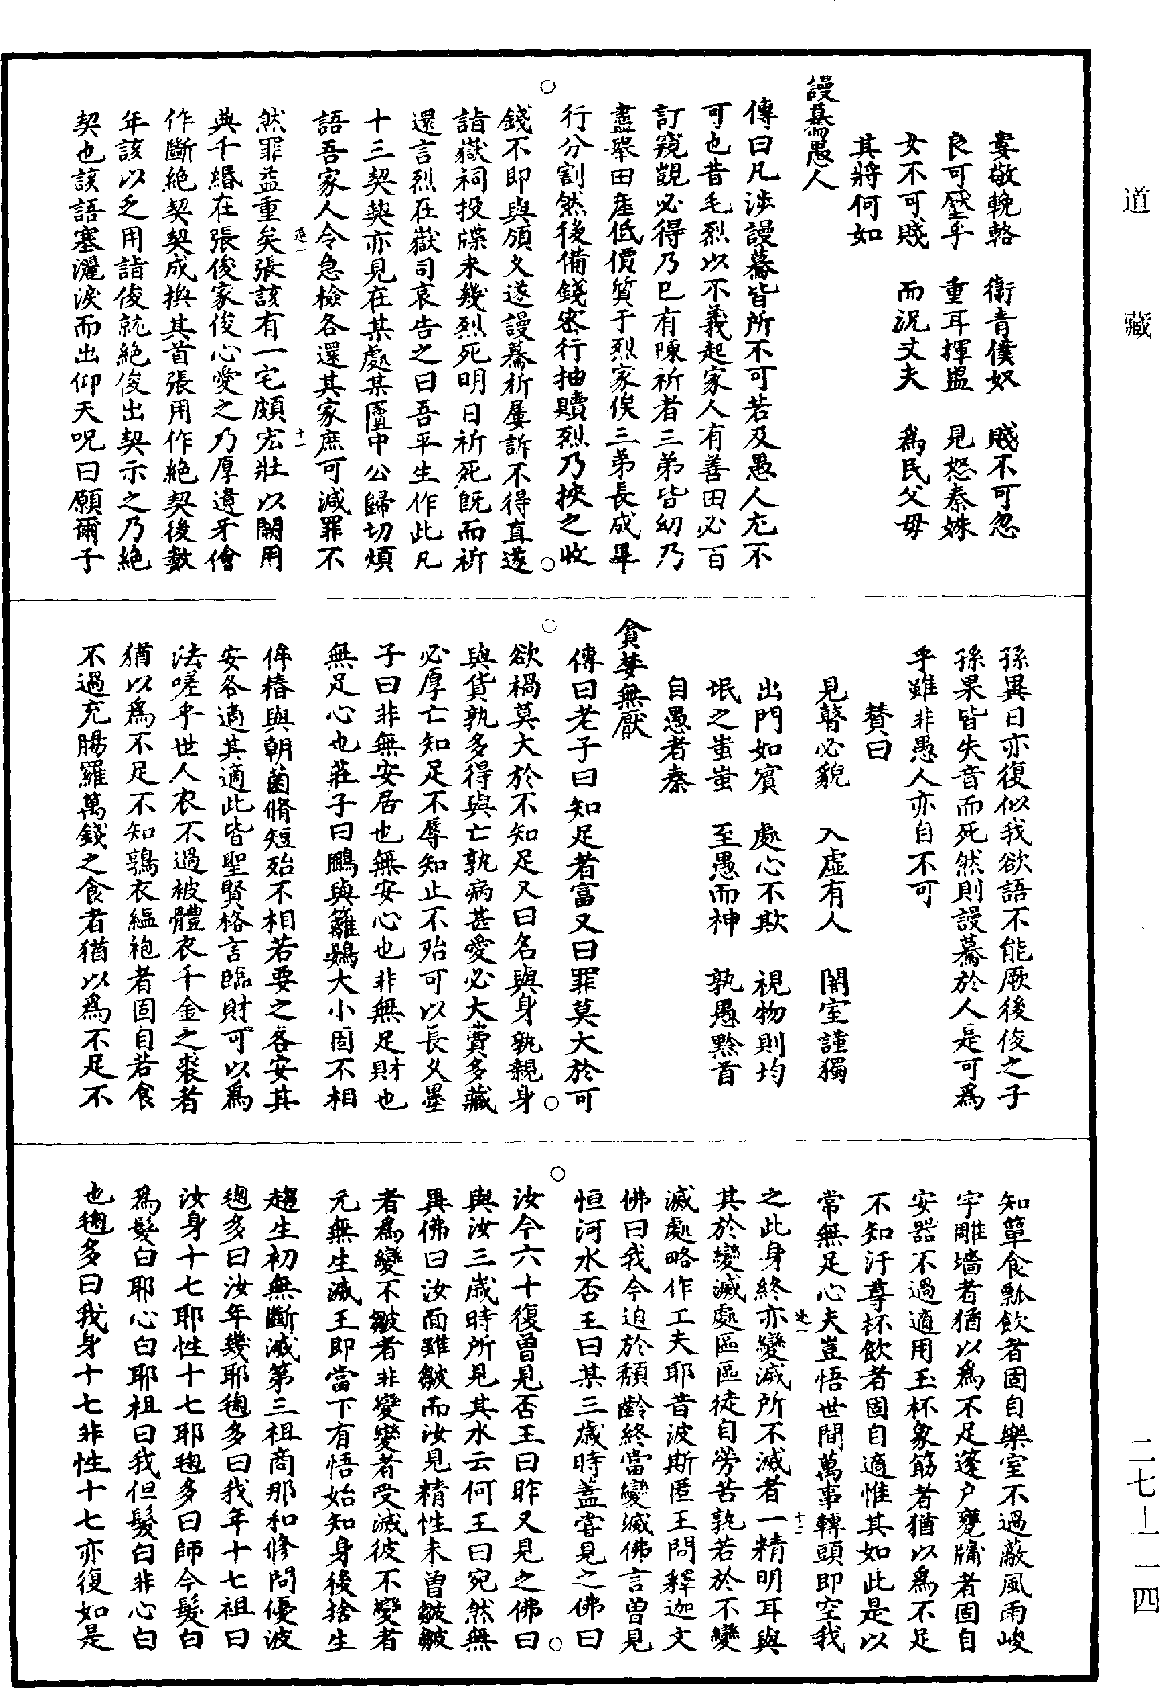 婁敬輓輅　衛青僕奴　賤不可忽
良可壓乎　重耳揮盥　見怒秦姝
女不可賤　而況丈夫　為民父母
其將何如
謾驀愚人
傳曰凡涉謾驀皆所不可若及愚人尤不
可也昔毛烈以不義起家人有善田必百
訂窺覬必得乃已有陳祈者三弟皆幼乃
盡舉田產低價質于烈家俟三弟長成畢
行分割然後備錢密行抽贖烈乃挾之收
錢不即與頎久遂謾驀祈屢訴不得直遂
詣嶽祠投牒未幾烈死明日祈死既而祈
還言烈在嶽司哀告之曰吾平生作此凡
十三契契亦見在某處某匱中公歸切煩
語吾家人令急檢各還其家庶可減罪不
然罪益重矣張該有一宅頗宏壯以闕用
典千緡在張俊家俊心愛之乃厚遺牙儈
作斷絕契契成換其首張用作絕契後數
年該以乏用詣俊就絕俊出契示之乃絕
契也該語塞灑淚而出仰天呪曰願爾子
孫異日亦復似我欲語不能厥後俊之子
孫果皆失音而死然則謾驀於人是可為
乎雖非愚人亦自不可
贊曰
見瞽必貌　入虛有人　闇室謹獨
出門如賓　處心不欺　視物則均
氓之蚩蚩　至愚而神　孰愚黔首
自愚者秦
貪婪無厭
傳曰老子曰知足者富又曰罪莫大於可
欲禍莫大於不知足又曰名與身孰親身
與貨孰多得與亡孰病甚愛必大費多藏
必厚亡知足不辱知止不殆可以長久墨
子曰非無安居也無安心也非無足財也
無足心也莊子曰鵬與籬鷃大小固不相
侔椿與朝菌脩短殆不相若要之各安其
安各適其適此皆聖賢格言臨財可以為
法嗟乎世人衣不過被體衣千金之裘者
猶以為不足不知鶉衣縕袍者固自若食
不過充腸羅萬錢之食者猶以為不足不
知簞食瓢飲者固自樂室不過蔽風雨峻
宇雕墻者猶以為不足蓬戶甕牖者固自
安器不過適用玉杯象筯者猶以為不足
不知汙尊抔飲者固自適惟其如此是以
常無足心夫豈悟世間萬事轉頭即空我
之此身終亦變滅所不滅者一精明耳與
其於變滅處區區徒自勞苦孰若於不變
滅處略作工夫耶昔波斯匿王問釋迦文
佛曰我今迫於頹齡終當變滅佛言曾見
恒河水否王曰某三歲時蓋嘗見之佛曰
汝今六十復曾見否王曰昨又見之佛曰
與汝三歲時所見其水云何王曰宛然無
異佛曰汝面雖皺而汝見精性未曾皺皺
者為變不皺者非變變者受滅彼不變者
元無生滅王即當下有悟始知身後捨生
趨生初無斷滅第三祖商那和修問優波
毱多曰汝年幾耶毱多曰我年十七祖曰
汝身十七耶性十七耶毱多曰師今髮白
為髮白耶心白耶祖曰我但髮白非心白
也毱多曰我身十七非性十七亦復如是
道藏
二七—一一四